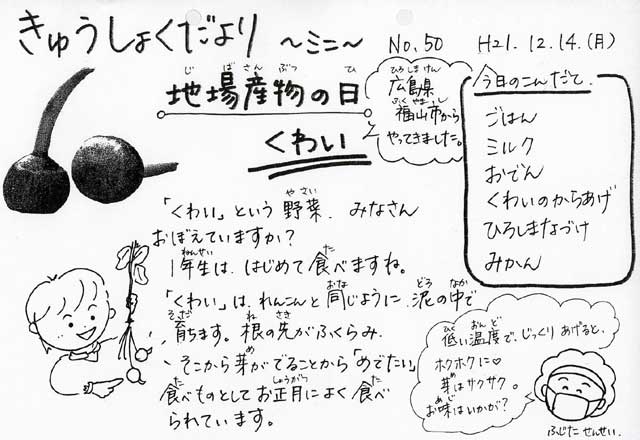 きゅうしょくだより ～ミニ～ No.50 H21.12.14.(月)
地場産物の日
じ ば さん ぶつ ひ
くわい
ひろしま けん
広島県
ふくやまし
福山市から
やってきました。
今日のこんだて.
ごはん
ミルク
おでん
くわいのからあげ
ひろしまなづけ
みかん
や さい
「くわい」という 野菜. みなさん
おぼえていますか?
ねんせい た
1年生は、はじめて食べますね。
おな どろ なか
「くわい」は、れんこんと同じように、泥の中で
そだ ね さき
育ちます。根の先がふくらみ、
め
そこから芽がでることから「めでたい」
た しょうがつ た
食べものとしてお正月によく食べ
られています。
ひく おん ど
低い温度で、じっくりあげると、
ホクホクに♡
め
芽はサクサク。
あじ
お味はいかが?
ふじた せんせい.